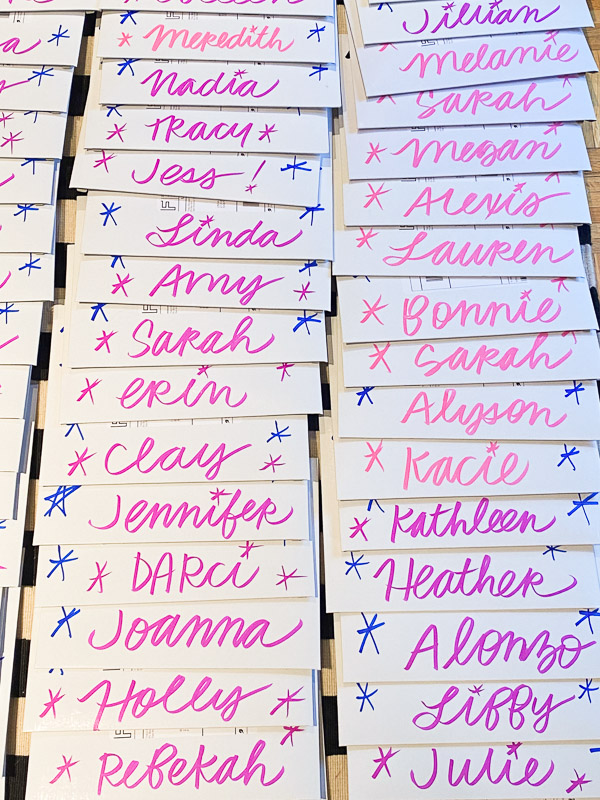 Meredith
Nadia
Tracy
Jess!
Linda
Amy
Sarah
Erin
Clay
Jennifer
DARci
Joanna
Holly
Rebekah
Jillian
Melanie
Sarah
Megan
Alexis
Lauren
Bonnie
Sarah
Alyson
Kacie
Kathleen
Heather
Alonzo
Libby
Julie